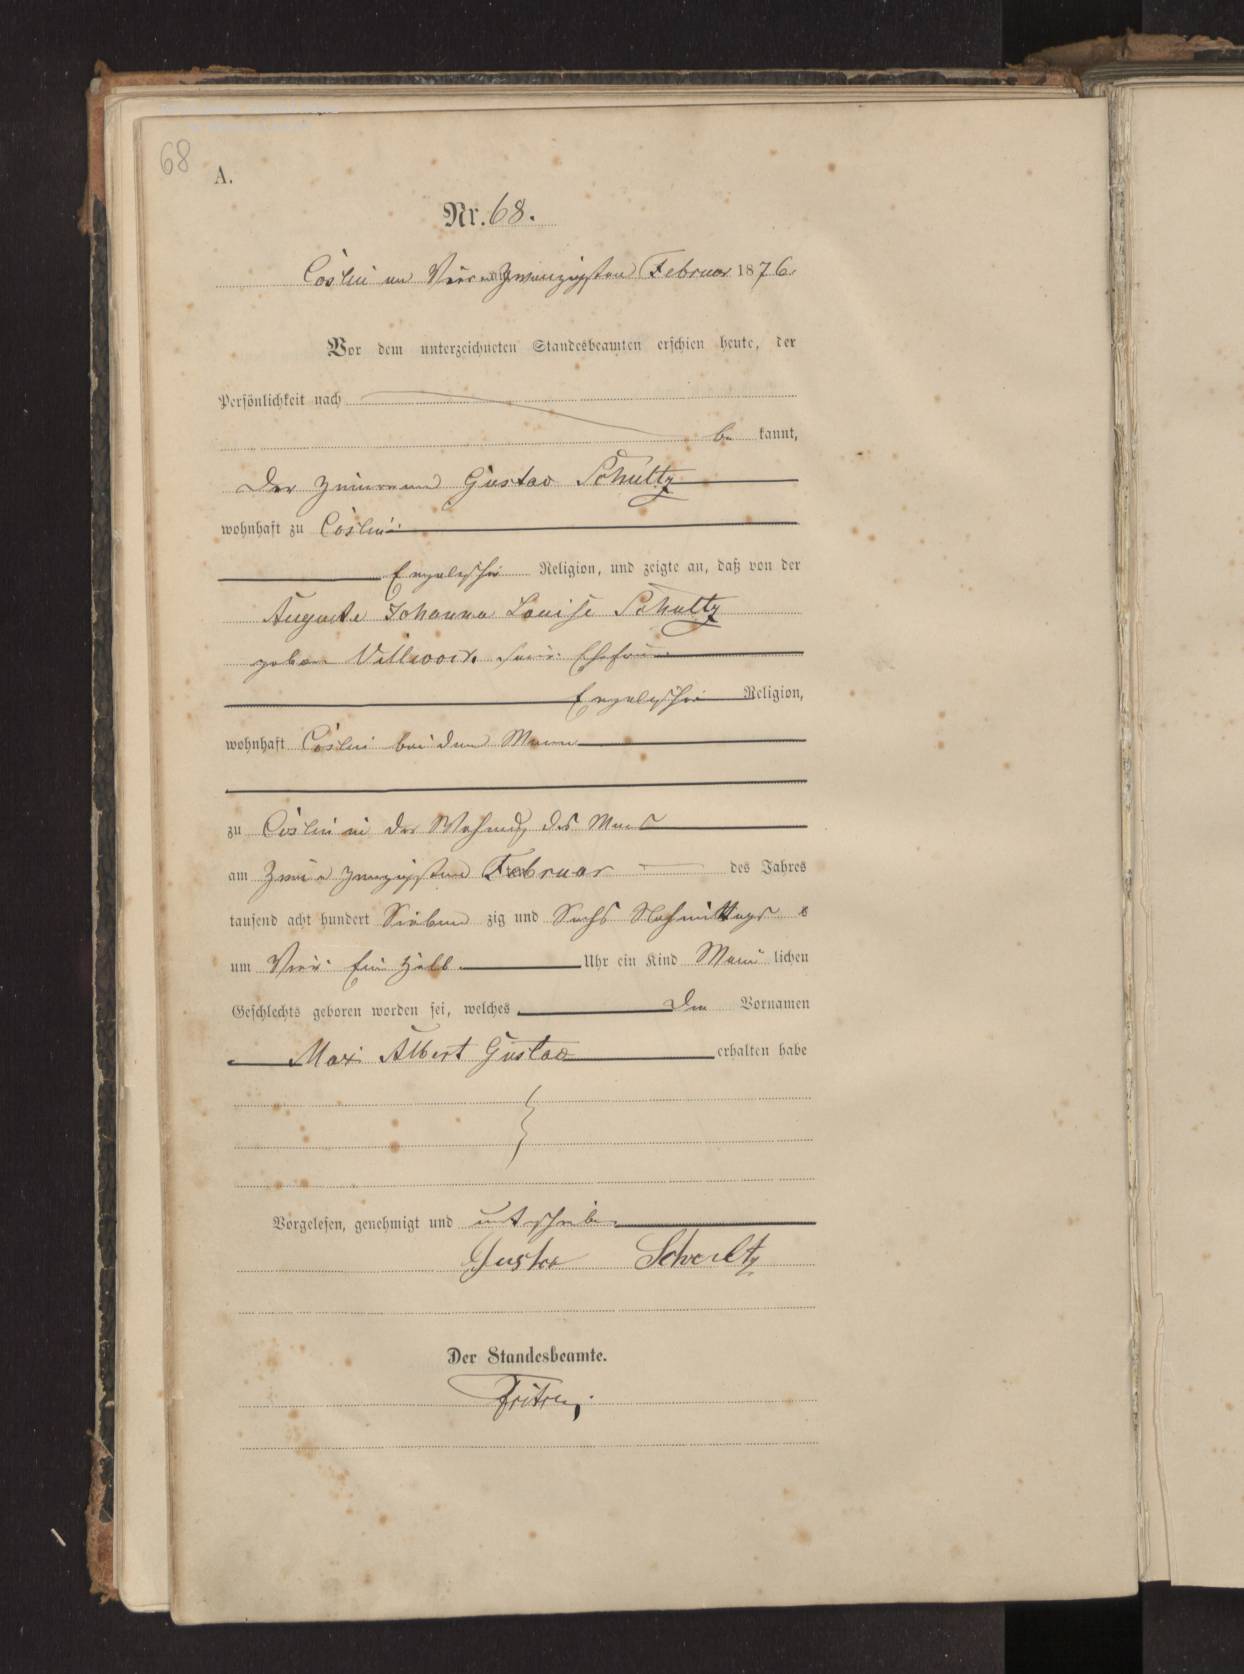 68
A.
Nr. 68.
Cöslin am Vier und Zwanzigsten Februar 1876.
Vor dem unterzeichneten Standesbeamten erschien heute, der
Persönlichkeit nach
be kannt,
der Gustav Schultz
wohnhaft zu Cöslin
Evangelischer Religion, und zeigte an, daß von der
Auguste Johanna Louise Schultz
geboren Villwock seine Ehefrau
Evangelischer Religion,
wohnhaft Cöslin bei dem Manne
zu Cöslin in der Wohnung des Mannes
am Zwei u Zwanzigsten Februar des Jahres
tausend acht hundert Sieben zig und Sechs Nachmittags
um Vier Ein halb Uhr ein Kind Männ lichen
Geschlechts geboren worden sei, welches die Vornamen
Max Albert Gustav erhalten habe
Vorgelesen, genehmigt und unterschrieben
Gustav Schultz
Der Standesbeamte.